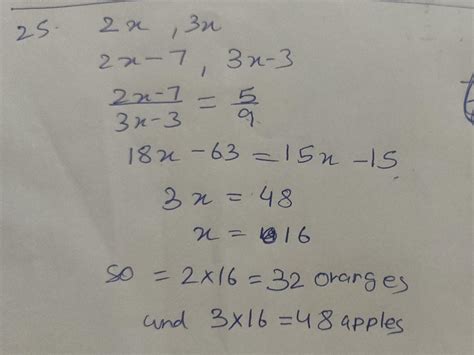 25. 2x , 3x
2x-7 , 3x-3
2x-7/3x-3 = 5/9
18x - 63 = 15x - 15
3x = 48
x = 16
so = 2×16 = 32 oranges
und 3×16 = 48 apples